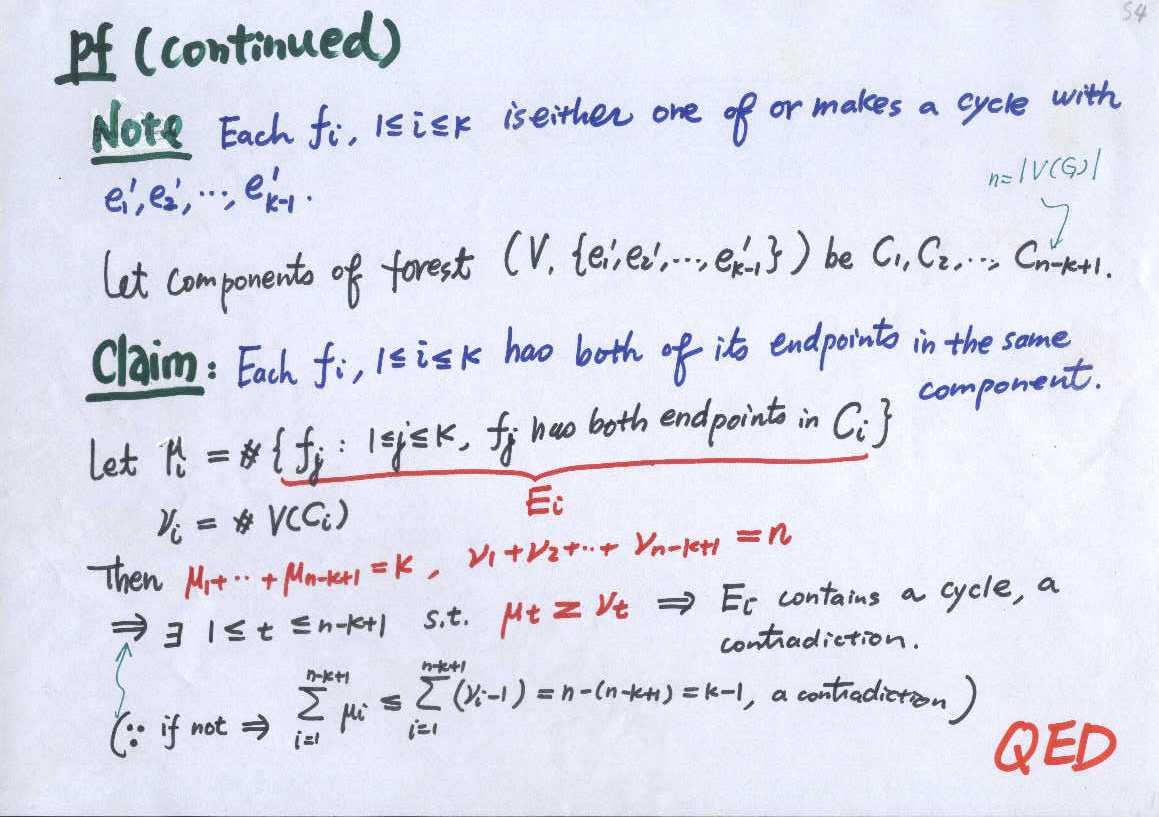 54
pf (continued)
Note Each fi, 1≤i≤k is either one of or makes a cycle with
e1', e2', ..., e'k-1.
n=|V(G)|
Let components of forest (V, {e1', e2', ..., e'k-1}) be C1, C2, ..., Cn-k+1.
Claim: Each fi, 1≤i≤k has both of its endpoints in the same
component.
Let μi = # {fj : 1≤j≤k, fj has both endpoints in Ci}
Ei
νi = # V(Ci)
Then μ1+··+μn-k+1 = k, ν1+ν2+··+νn-k+1 = n
⇒ ∃ 1≤t≤n-k+1 s.t. μt ≥ νt ⇒ Ei contains a cycle, a
contradiction.
(∵ if not ⇒ ∑_{i=1}^{n-k+1} μi ≤ ∑_{i=1}^{n-k+1} (νi-1) = n-(n-k+1) = k-1, a contradiction)
QED